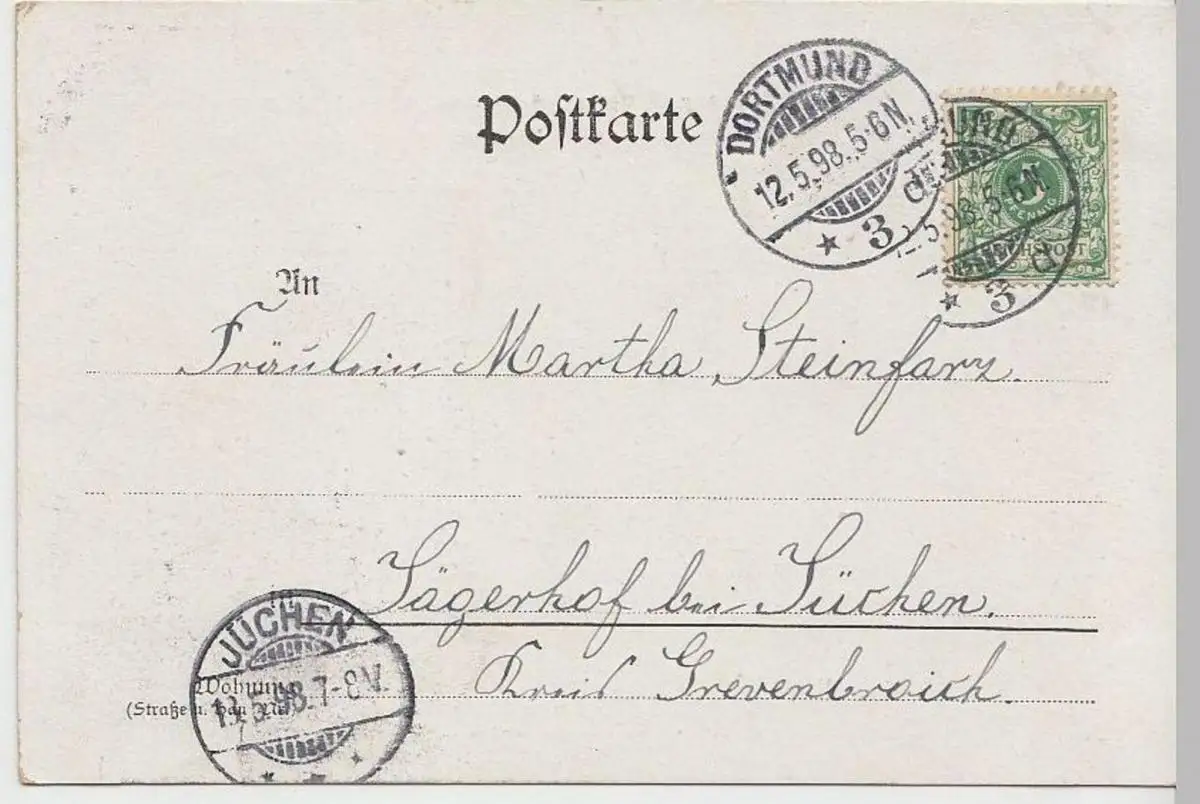 Postkarte
DORTMUND
12.5.98. 5-6 N.
★ 3 d
UND
5.98. 5-6 N
★ 3 d
5
REICHSPOST
An
Fräulein Martha Steinfarz.
Jägerhof bei Jüchen.
Kreis Grevenbroich.
Wohnung
(Straße u. Haus Nr.
JÜCHEN
13.5.98. 7-8 V.